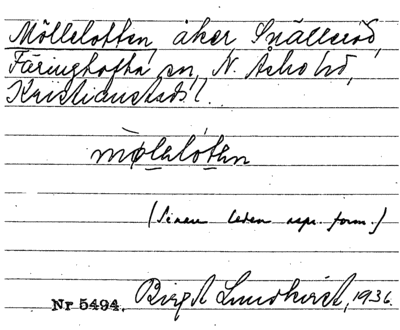 Möllelotten, åker, Snälleröd,
Färinghofta sn, N. Åsbo hd,
Kristianstads l.
mø̀lelótan
(Senare leden uspr. form.)
Nr 5494. Birgit Lundkvist, 1936.